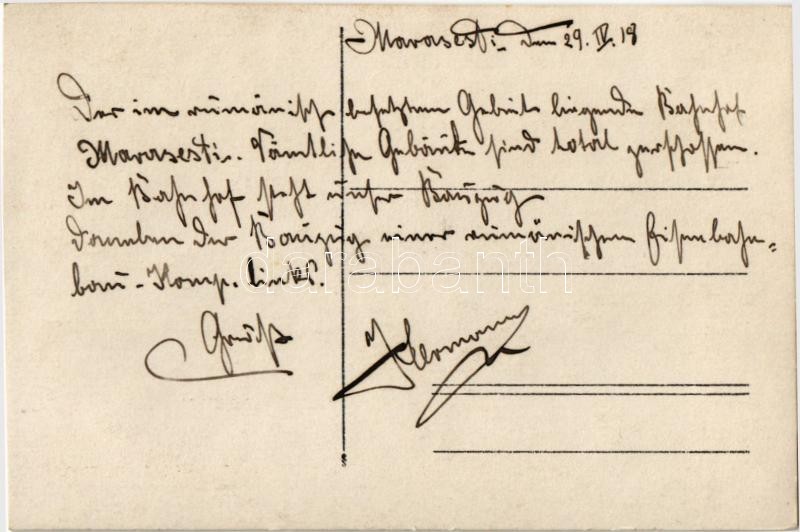 Marasesti, den 29. IV. 18
Der im rumänisch besetzten Gebiet liegende Bahnhof
Marasesti. Sämtliche Gebäude sind total zerschossen.
Im Bahnhof steht unser Bauzug
daneben der Bauzug einer rumänischen Eisenbahn-
bau-Komp. links.
Gruß Hermann
darabanth